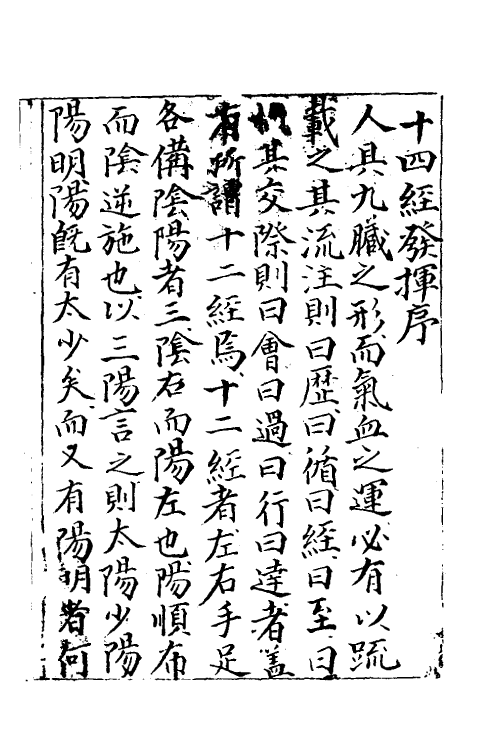 十四經發揮序
人具九臟之形而氣血之運必有以䟽
載之其流注則曰歴曰循曰經曰至曰
扺其交際則曰會曰過曰行曰逹者盖
有所謂十二經焉十二經者左右手足
各俻陰陽者三陰右而陽左也陽順布
而陰逆施也以三陽言之則太陽少陽
陽明陽旣有太少矣而又有陽明者何